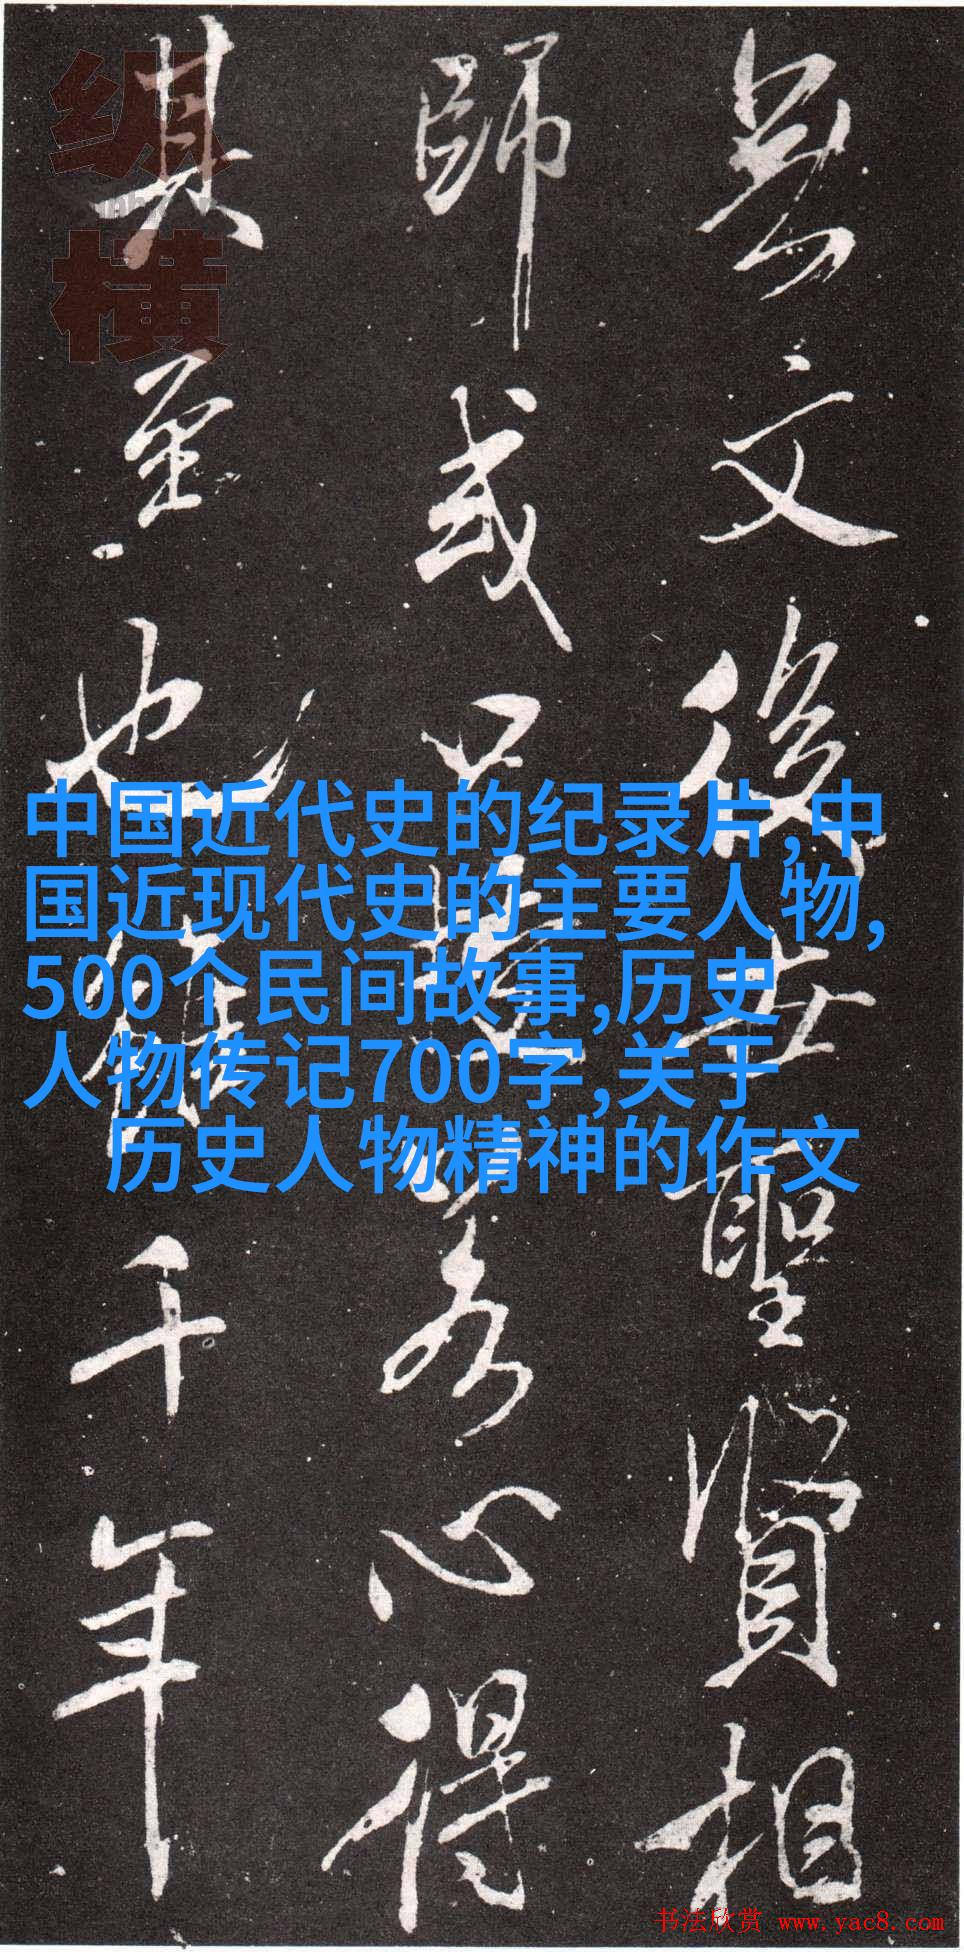 文後世聖賢相
師或口心得
其至也雖千年
横
中国近代史的纪录片,中
国近现代史的主要人物,
500个民间故事,历史
人物传记700字,关于
历史人物精神的作文
书法欣赏 www.yac8.com